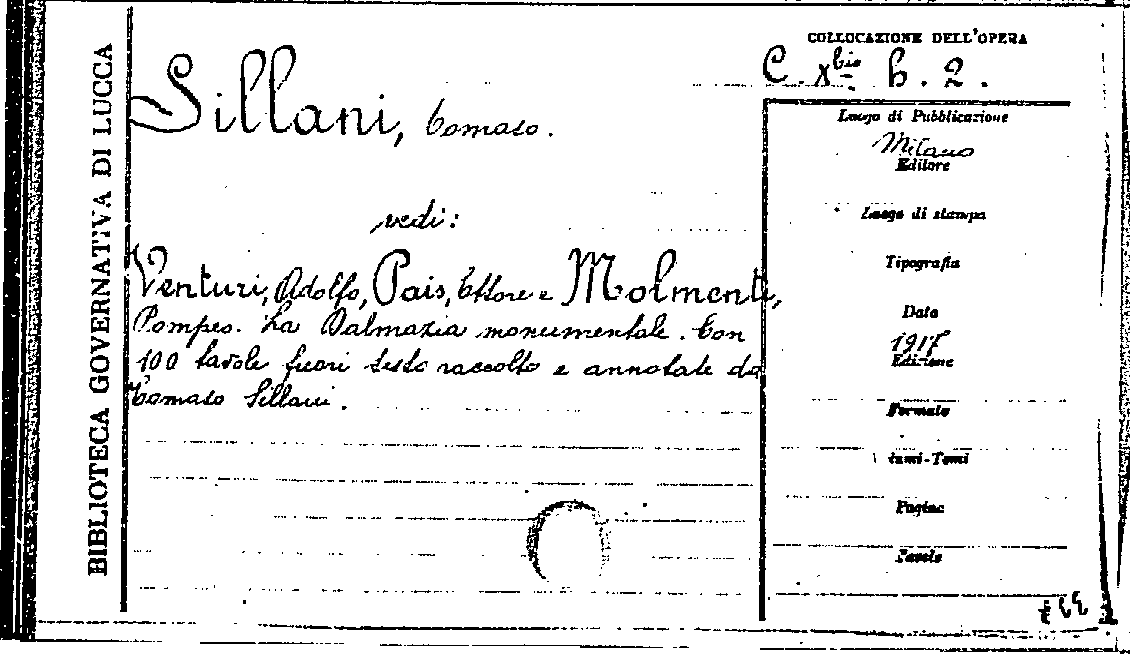 BIBLIOTECA GOVERNATIVA DI LUCCA
COLLOCAZIONE DELL'OPERA
C. X bis b. 2.
Sillani, Tomaso.
vedi:
Venturi, Adolfo, Pais, Ettore e Molmenti,
Pompeo. La Dalmazia monumentale. Con
100 tavole fuori testo raccolto e annotate da
Tomaso Sillani.
Luogo di Pubblicazione
Milano
Editore
Luogo di stampa
Tipografia
Data
1917
Edizione
Formato
lumi-Tomi
Pagine
Tavole